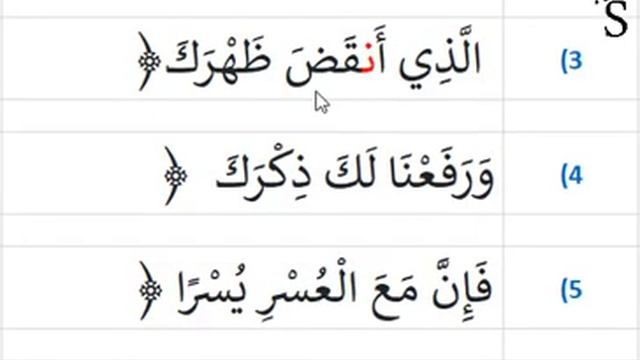 S
(3 الَّذِي أَنقَضَ ظَهْرَكَ ﴿
(4 وَرَفَعْنَا لَكَ ذِكْرَكَ ﴿
(5 فَإِنَّ مَعَ الْعُسْرِ يُسْرًا ﴿